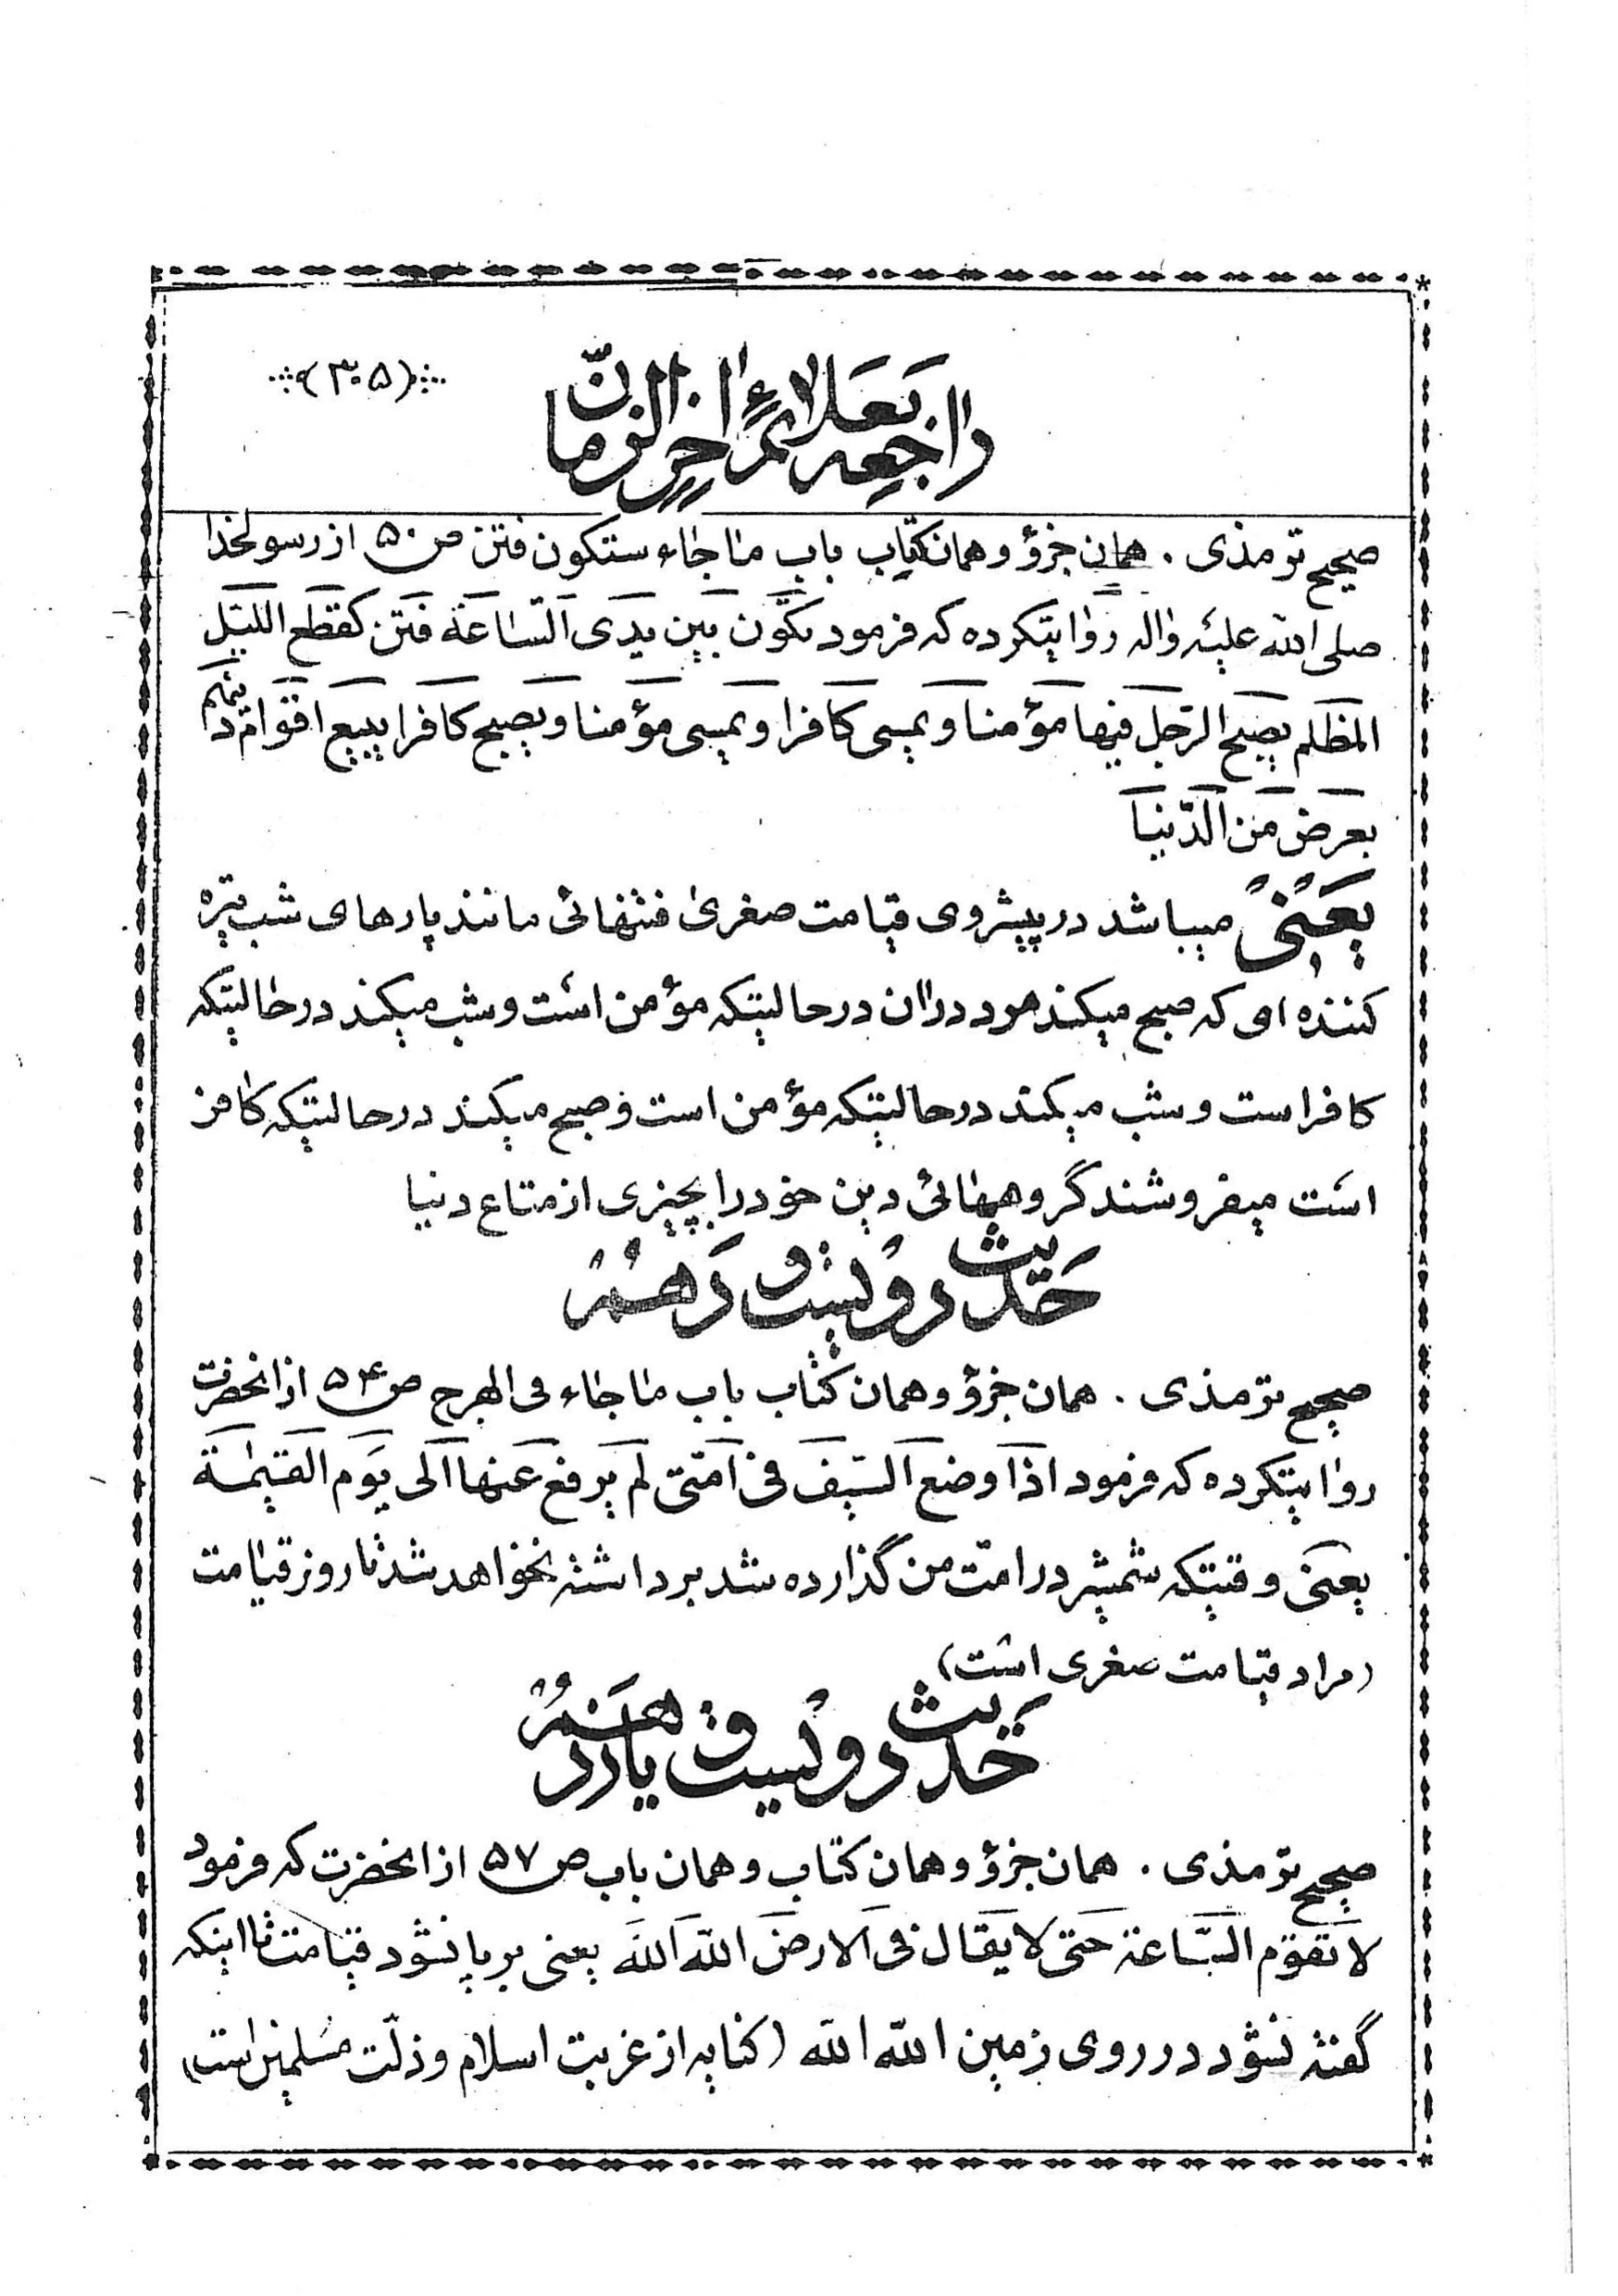 (۳۰۵)
راجعه بعلائم اخر الزمان
صحیح ترمذی . همان جزؤ و همان کتاب باب ما جاء ستکون فتن ص ۵۰ از رسولخدا
صلی الله علیه واله روایتکرده که فرمود تکون بین یدی الساعة فتن کقطع اللیل
المظلم یصبح الرجل فیها مؤمنا و یمسی کافرا و یمسی مؤمنا و یصبح کافرا یبیع اقوام دینهم
بعرض من الدنیا
یعنی میباشد در پیشروی قیامت صغری فتنهائی مانند پارهای شب تیره
کننده ای که صبح میکند مرد در ان در حالیتکه مؤمن است و شب میکند در حالیتکه
کافر است و شب میکند در حالیتکه مؤمن است و صبح میکند در حالیتکه کافر
است میفروشند گروههائی دین خود را بچیزی از متاع دنیا
حدیث دویست و دهم
صحیح ترمذی . همان جزؤ و همان کتاب باب ما جاء فی الهرج ص ۵۴ از انحضرت
روایتکرده که فرمود اذا وضع السیف فی امتی لم یرفع عنها الی یوم القیمة
یعنی وقتیکه شمشیر در امت من گذارده شد برداشته نخواهد شد تا روز قیامت
(مراد قیامت صغری است)
حدیث دویست و یازدهم
صحیح ترمذی . همان جزؤ و همان کتاب و همان باب ص ۵۷ از انحضرت که فرمود
لا تقوم الساعة حتی لا یقال فی الارض الله الله یعنی بر پا نشود قیامت تا اینکه
گفته نشود در روی زمین الله الله (کنایه از غربت اسلام و ذلت مسلمین است)